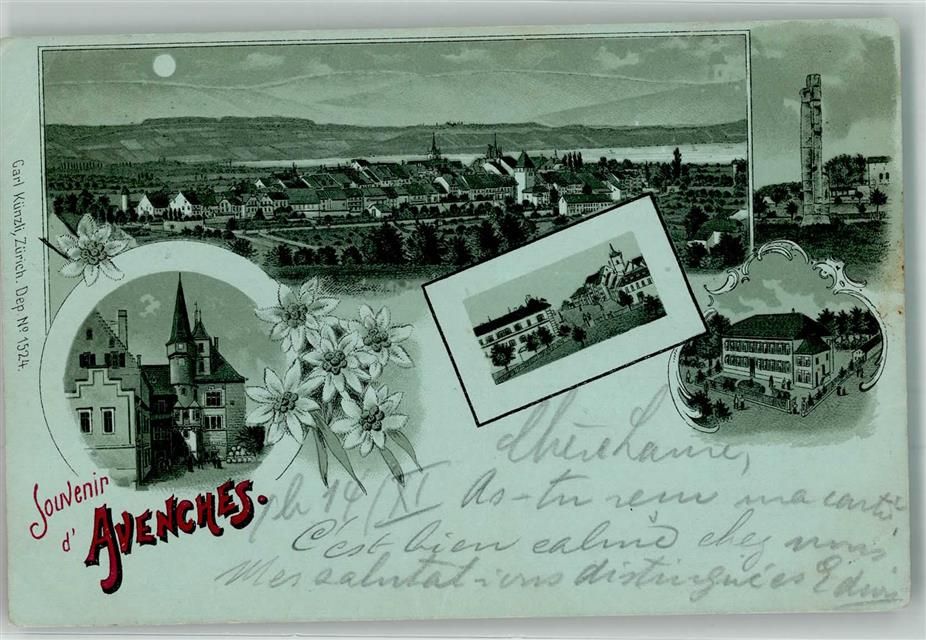 Carl Künzli, Zürich. Dep. No 1524.
Souvenir
d' AVENCHES.
Chère
14/XI As-tu ma carte
C'est bien calme chez nous
Mes salutations distinguées